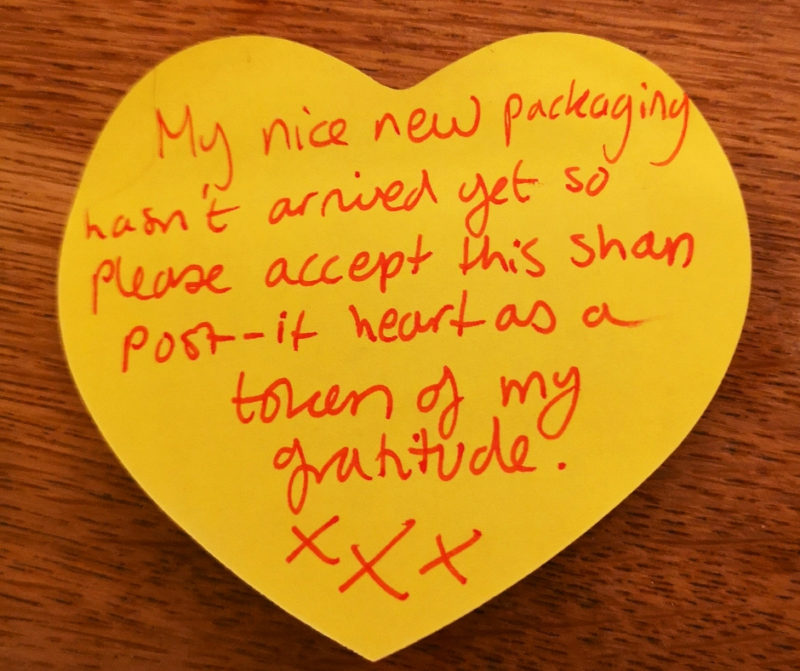 My nice new packaging
hasn't arrived yet so
please accept this shan
post-it heart as a
token of my
gratitude.
xxx